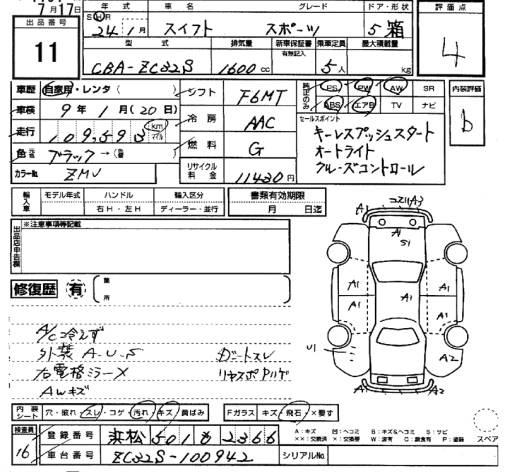 7月17日
出品番号
11
年式 車名 グレード ドア・形状
SH 24年1月 スイフト スポーツ 5 箱
型式 排気量 新車保証書 有無記入 乗車定員 最大積載量
CBA-ZC32S 1600cc 5人 kg
評価点
4
車歴 自家用・レンタ( )
車検 9年1月(20日)
走行 109,593 km マイル
色 元色 ブラック→(替 )
カラーNo. ZMV
シフト F6MT
冷房 AAC
燃料 G
リサイクル料金 11430円
純正のみ PS PW AW SR
ABS エアB TV ナビ
内装評価
b
セールスポイント
キーレスプッシュスタート
オートライト
クルーズコントロール
輸入車 モデル年式 ハンドル 右H・左H 輸入区分 ディーラー・並行
書類有効期限
月 日迄
出品店申告欄
※注意事項等記載
修復歴 有 箇所
A/C冷えず
外装 A.U.S
右電格ミラーX
AWキズ
シートスレ
A1 コスリ(A3)
A1
S1
A1 A1
A1
A1 A1
U1
A2
A1
内装シート 穴・破れ・スレ・コゲ・汚れ・キズ・黄ばみ
Fガラス キズ・飛石・X要す
検査員
16
登録番号 浜松 501 ま 2366
車台番号 ZC32S-100942
シリアルNo.
A:キズ U:ヘコミ B:キズ&ヘコミ S:サビ
XX:交換済 X:交換要 W:波有 C:腐食有 P:塗装
スペア